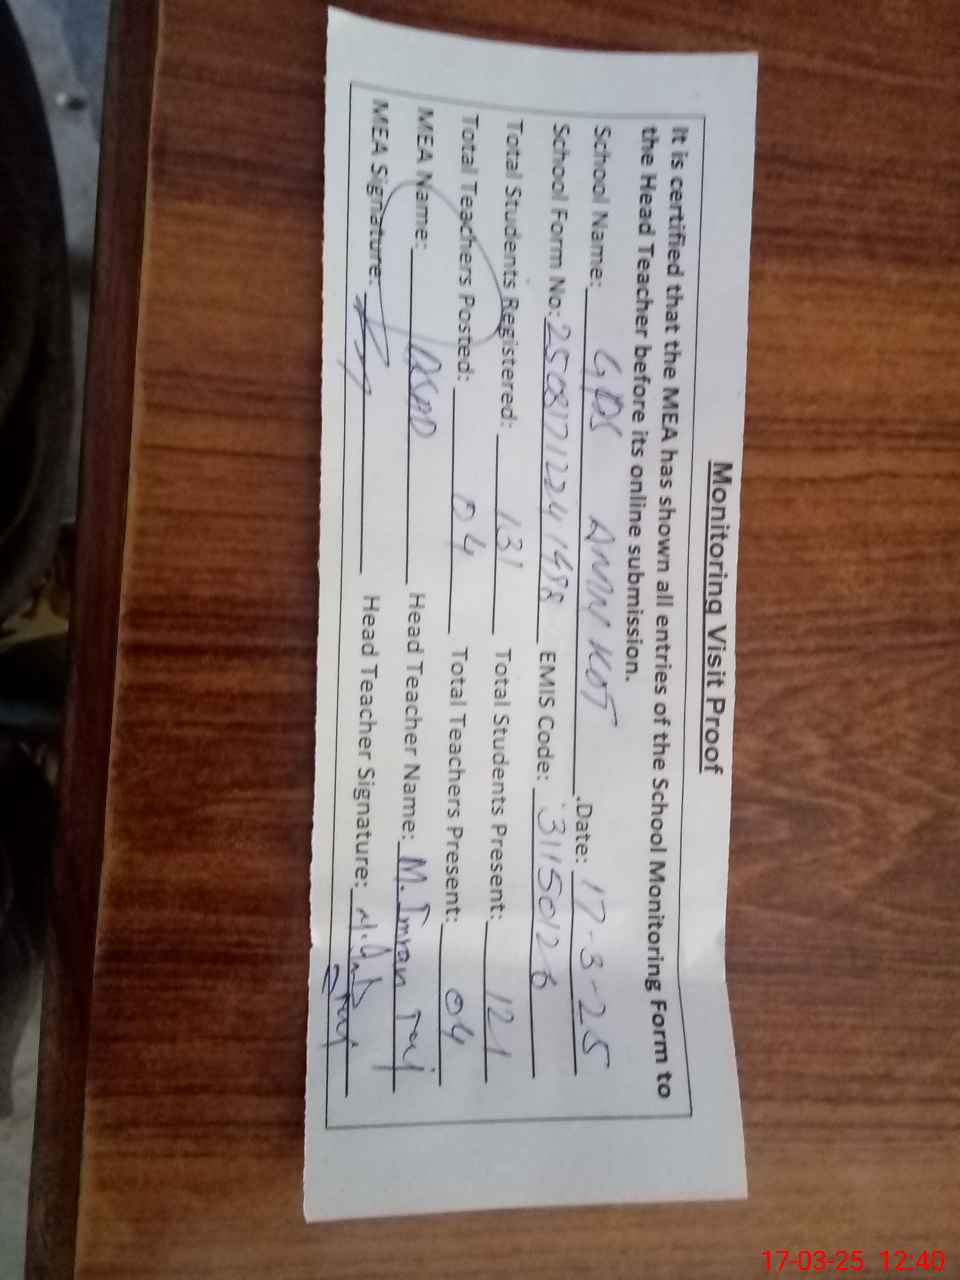 Monitoring Visit Proof
It is certified that the MEA has shown all entries of the School Monitoring Form to
the Head Teacher before its online submission.
School Name: GPS AMIN KOT .Date: 17-3-25
School Form No: EMIS Code: 31150126
Total Students Registered: 131 Total Students Present: 121
Total Teachers Posted: 04 Total Teachers Present: 04
MEA Name: ASAD Head Teacher Name: M. Imran Taj
MEA Signature: Head Teacher Signature:
17-03-25 12:40